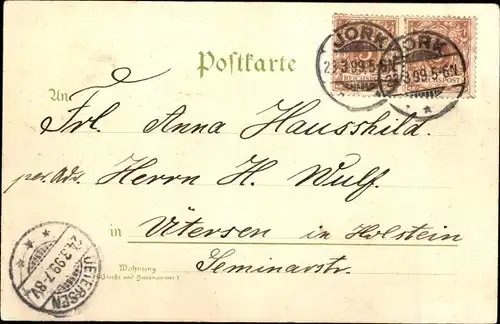 JORK
23.3.99.5-6N
JORK
23.3.99.5-6N
REICHSPOST
Postkarte
An
Frl. Anna Hausshild.
per. Adr. Herrn H. Wulf.
in Ütersen in Holstein
Wohnung
(Straße und Hausnummer)
Seminarstr.
UETERSEN
24.3.99.7-8V